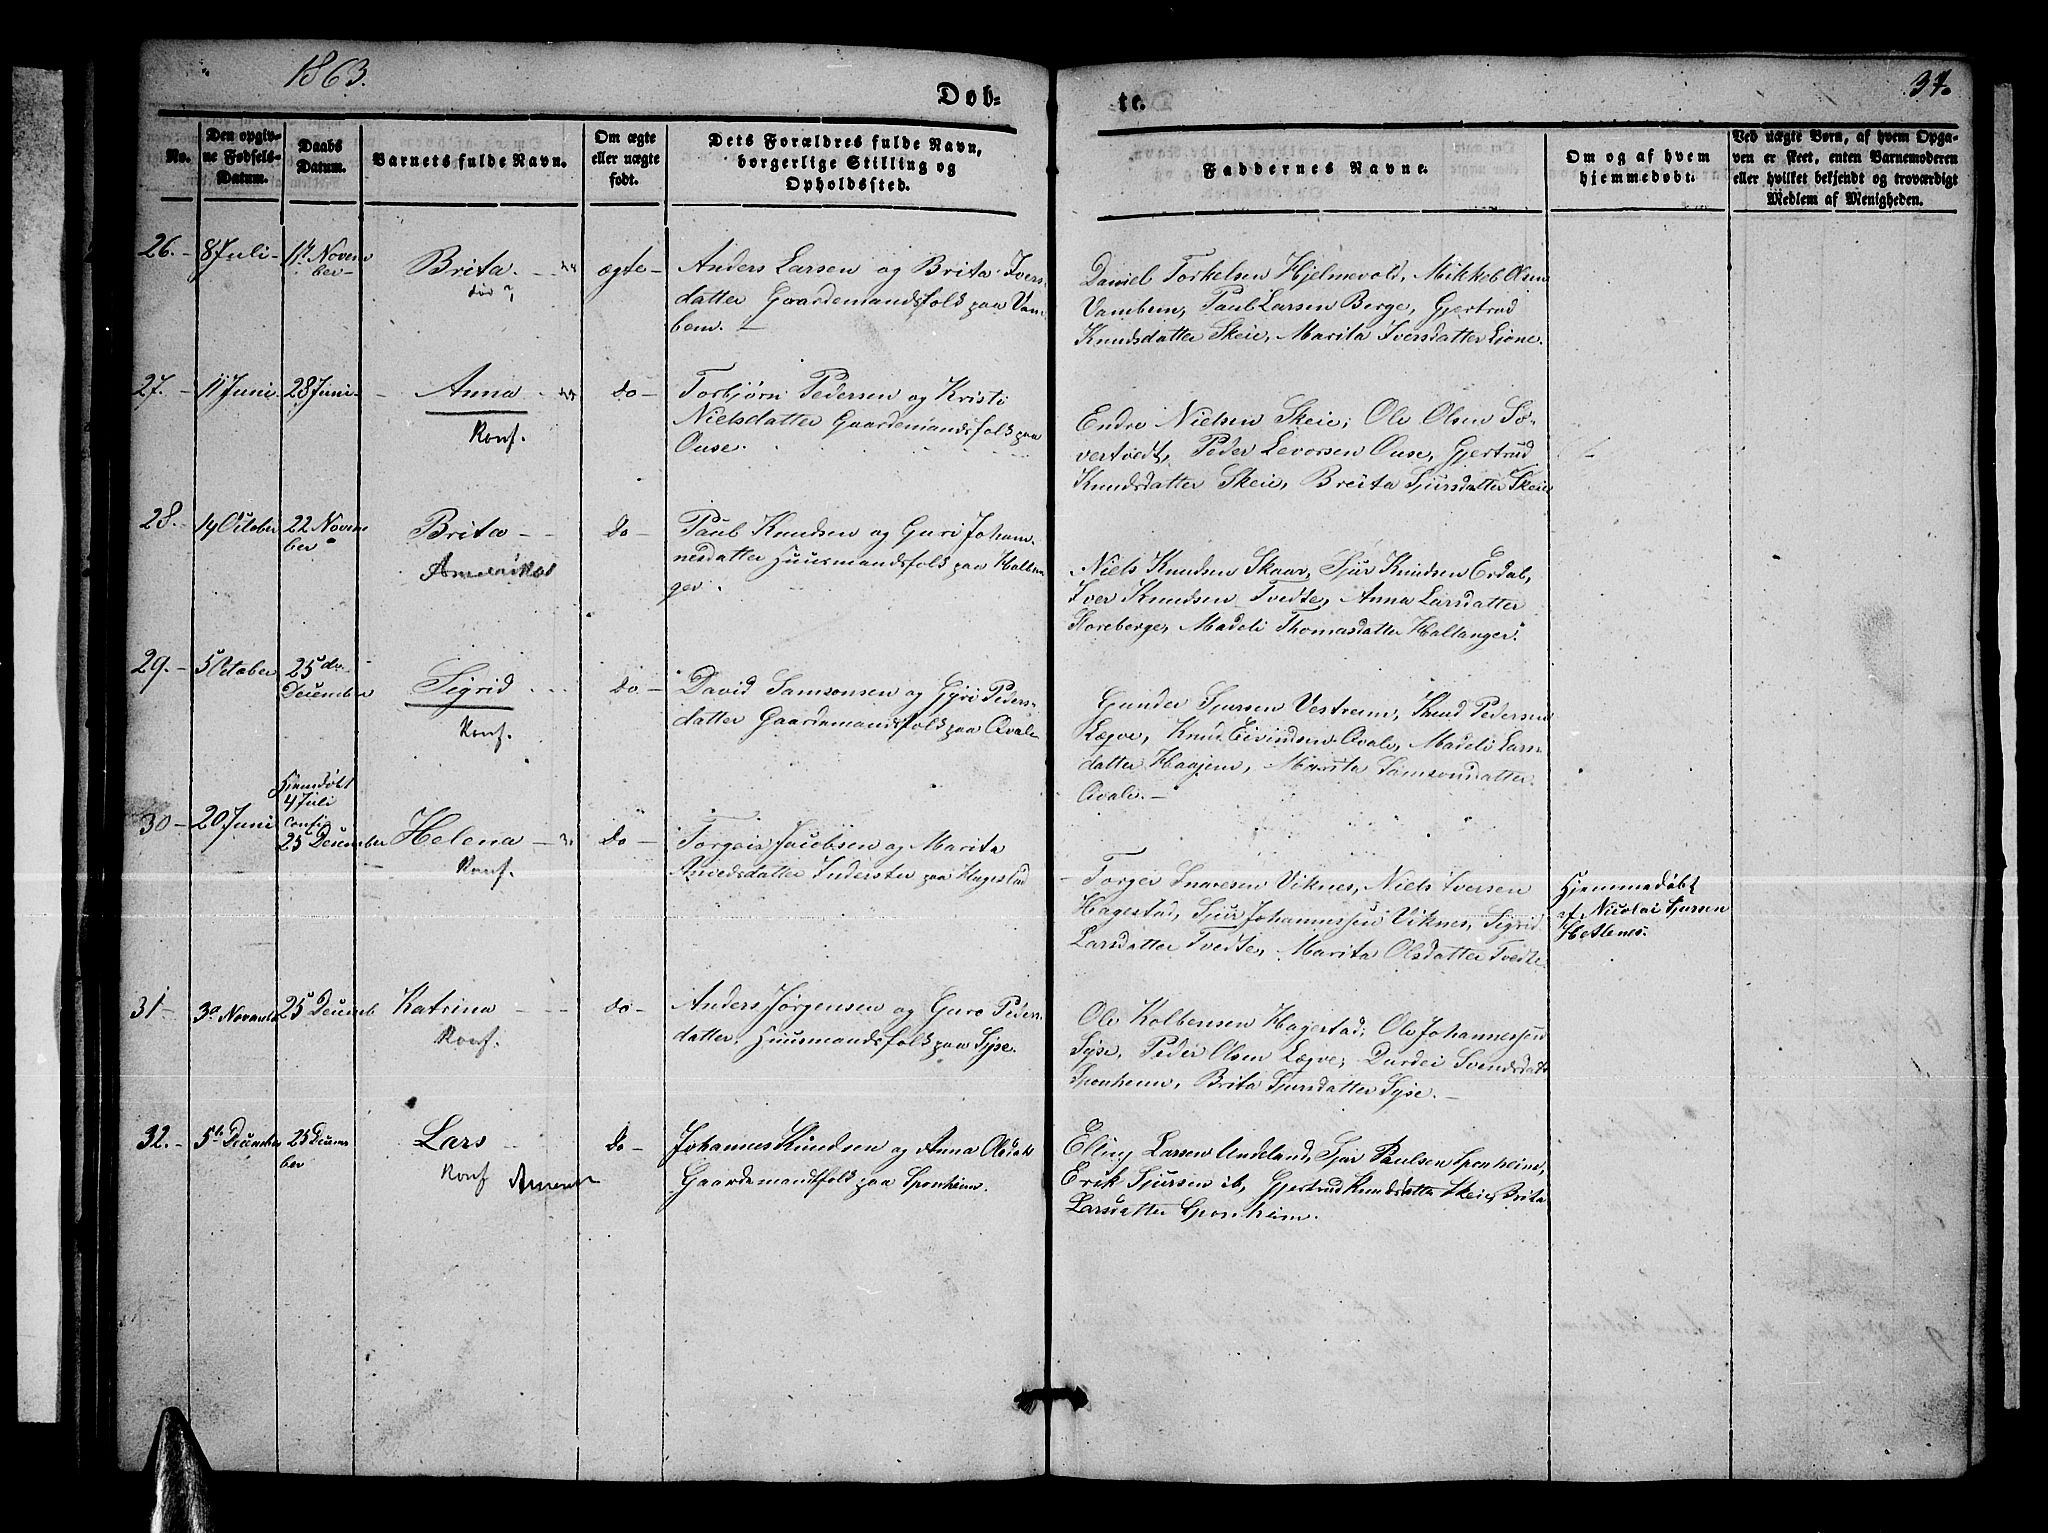 1863.
34.
Døb=
te.
No.
Den opgiv=
ne Fødsels=
Datum.
Daabs
Datum.
Barnets fulde Navn.
Om ægte
eller uægte
født.
Dets Forældres fulde Navn,
borgerlige Stilling og
Opholdssted.
Faddernes Navne.
Om og af hvem
hjemmedøbt.
Ved uægte Børn, af hvem Opga=
ven er skeet, enten Barnemoderen
eller hvilket bekjendt og troværdigt
Medlem af Menigheden.
26.
8 Juli
1ste Novem
ber
Brita
død
ægte
Anders Larsen og Brita Ivers=
datter Gaardemandsfolk paa Vam=
bem.
Daniel Torkelsen Hjelmevold, Mikkel Olsen
Vambem, Paul Larsen Berge, Gjertrud
Knudsdatter Skeie, Marita Iversdatter Lione.
27.
11 Juni
28 Juni
Anna
Konf.
do
Torbjørn Pedersen og Kristi
Nielsdatter Gaardemandsfolk paa
Ouse.
Endre Nielsen Skeie, Ole Olsen Sø-
vertvedt, Peder Levorsen Ouse, Gjertrud
Knudsdatter Skeie, Breita Sjursdatter Skeie
28.
14 October
22 Novem
ber
Brita
Amerika
do
Paul Knudsen og Guri Johan=
nesdatter Huusmandsfolk paa Haltan
ger.
Niels Knudsen Skaar, Sjur Knudsen Erdal,
Iver Knudsen Tvedte, Anna Larsdatter
Floreberge, Madeli Thomasdatter Haltanger.
29.
5 October
25de
December
Sigrid
Konf.
do
David Samsonsen og Gjøri Peders=
datter Gaardemandsfolk paa Qvale
Gunder Sjursen Vestrem, Knud Pedersen
Lægve, Knud Eivindsen Qvale, Madeli Lars=
datter Haajem, Marita Samsonsdatter
Qvale.
30
20 Juni
Hjemdøbt
4 Juli
Conf.
25 December
Helena
Konf.
do
Torgeis Jacobsen og Marita
Amundsdatter Inderster paa Hagestad
Torger Snaresen Viknes, Niels Iversen
Hagestad, Sjur Johannessen Viknes, Sigrid
Larsdatter Tvedte, Marita Olsdatter Tvedte
Hjemmedøbt
af Nicolai Sjursen
Hetlenes.
31
30 Novemb
25 Decemb
Katrina
Konf.
do
Anders Jørgensen og Guro Peders=
datter, Huusmandsfolk paa Syse.
Ole Kolbensen Hagestad, Ole Johannessen
Syse, Peder Olsen Lægve, Durdei Svendsdatt
Sponheim, Brita Sjursdatter Syse.
32.
5te December
25 Decem
ber
Lars
Konf Amerik
do
Johannes Knudsen og Anna Olsdatt
Gaardemandsfolk paa Sponheim.
Elling Larsen Undeland, Sjur Paulsen Sponheim,
Erik Sjursen ib, Gjertrud Knudsdatter Skeie, Brita
Larsdatter Sponheim.